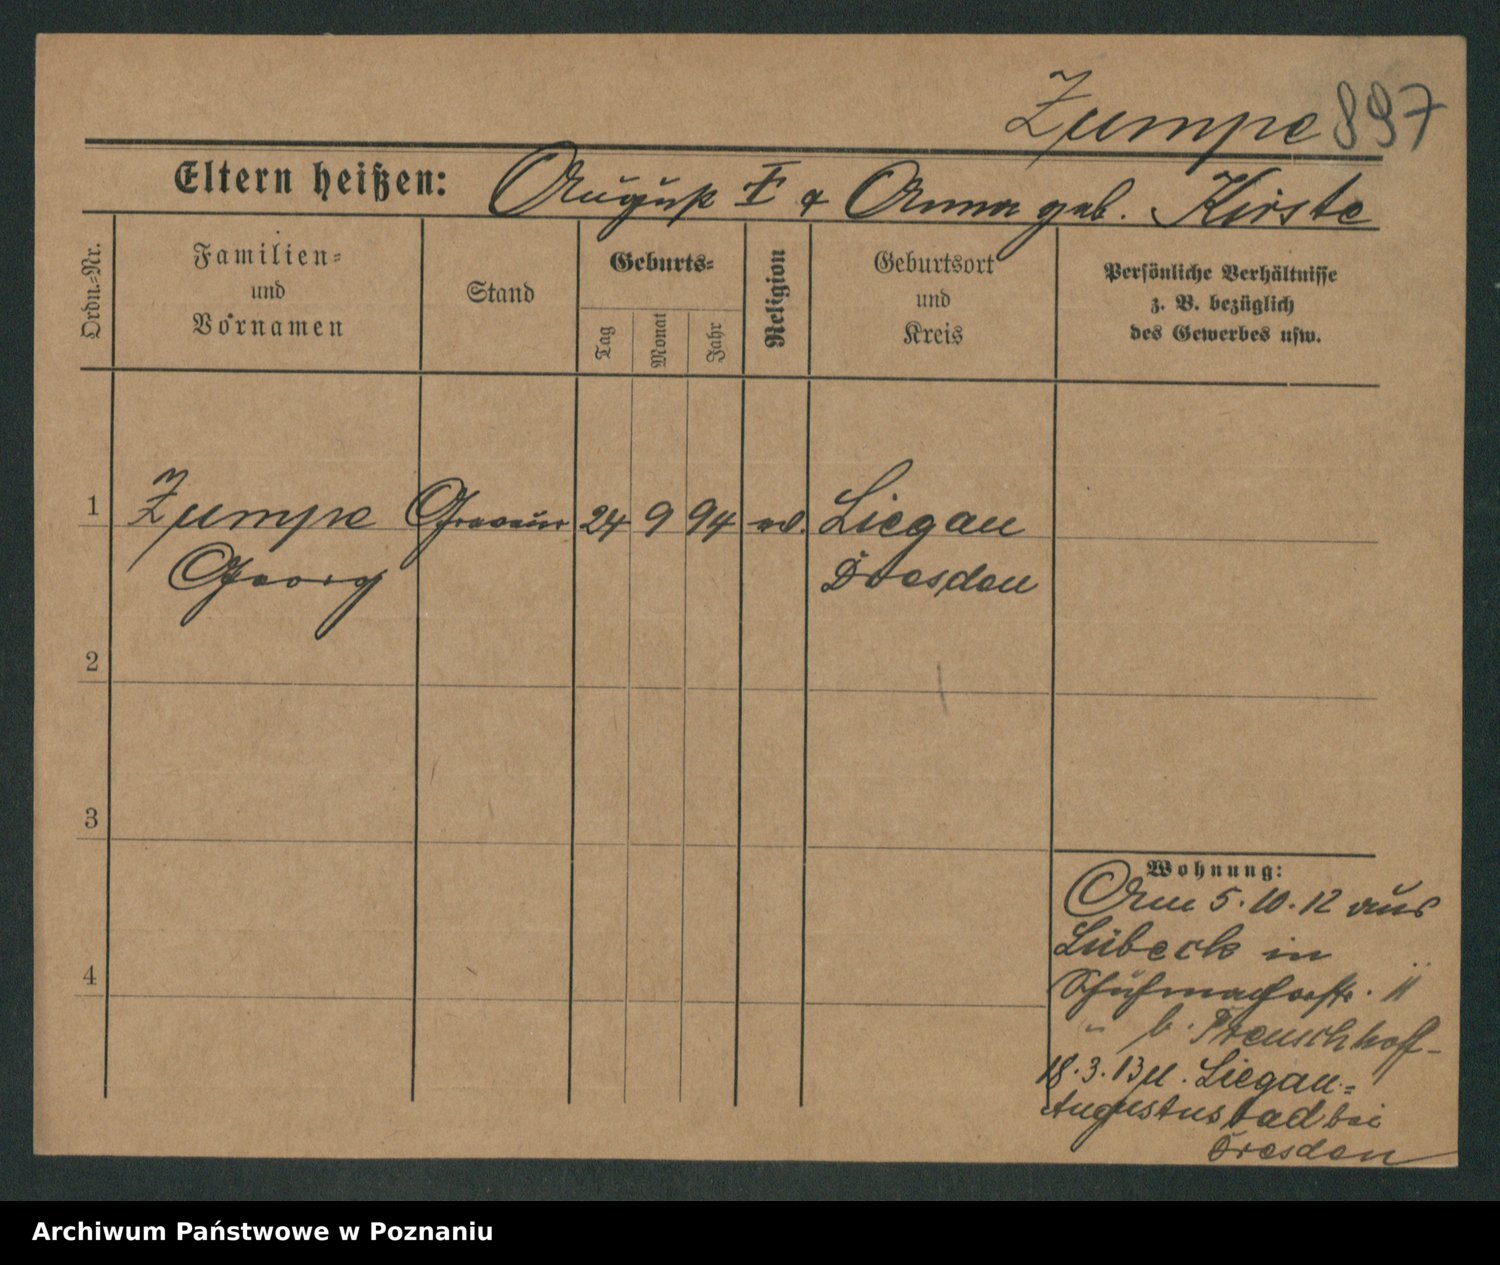 Zumpe 897
Eltern heißen: August † & Anna geb. Kirste
Ordn.-Nr.
Familien-
und
Vornamen
Stand
Geburts-
Tag
Monat
Jahr
Religion
Geburtsort
und
Kreis
Persönliche Verhältnisse
z. B. bezüglich
des Gewerbes usw.
1 Zumpe Graveur 24 9 94 ev. Liegau
Georg Dresden
2
3
4
Wohnung:
Am 5.10.12 aus
Lübeck in
Schuhmacherstr. 11
b. Treuschhoff
18.3.13 n. Liegau-
Augustusbad bei
Dresden
Archiwum Państwowe w Poznaniu